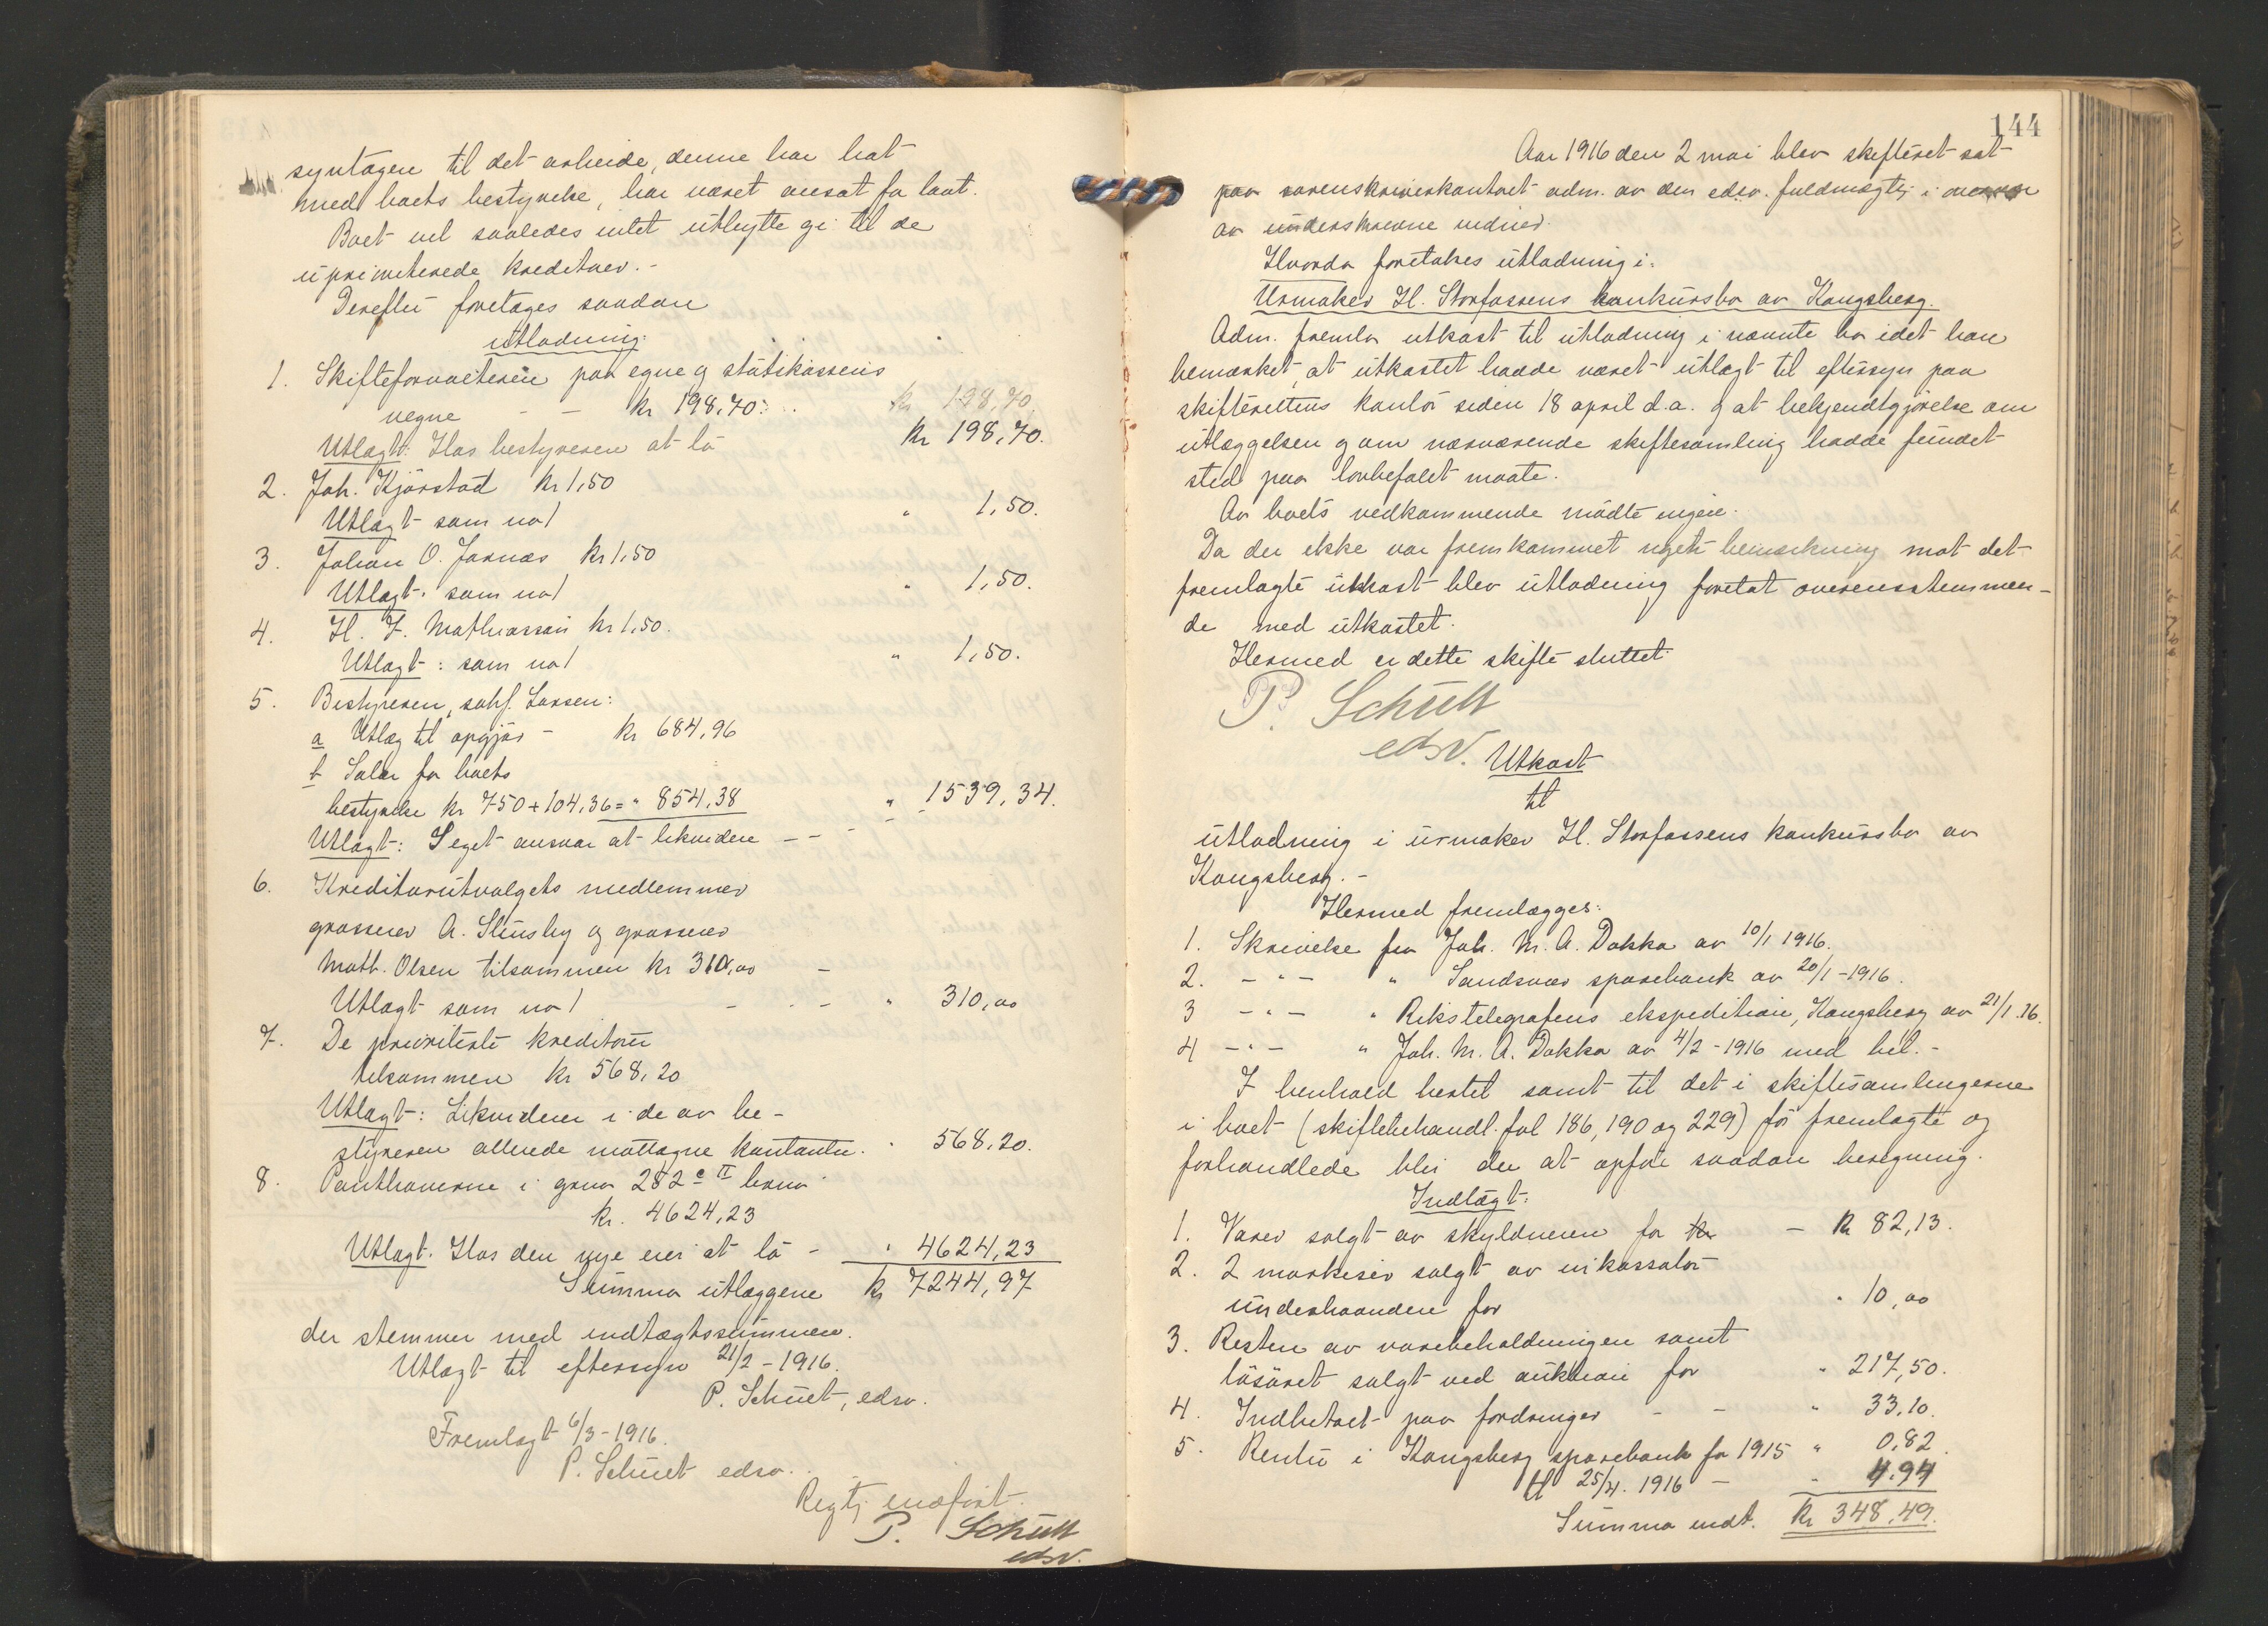 syntagen til det arbeide, denne har hat
med boets bestyrelse, har været ansat for lavt.
Boet vil saaledes intet utbytte gi til de
uprioriterede kreditorer.-
Derefter foretages saadan
utlodning:
1. Skifteforvalteren paa egne og statskassens
vegne - - kr 198,70. kr 198,70.
Utlagt: Hos bestyreren at faa kr 198,70.
2. Joh. Kjørstad kr 1,50
Utlagt som no 1 " 1,50.
3. Johan O. Jarnæs kr 1,50
Utlagt: som no 1 " 1,50.
4. H. J. Mathiassen kr 1,50.
Utlagt: som no 1 " 1,50.
5. Bestyreren, sakf. Larsen:
a Utlæg til opgjør - kr 684,96
b Salær for boets
bestyrelse kr 750+104,36= " 854,38 " 1539,34.
Utlagt: I eget ansvar at likvidere - - - -
6. Kreditorutvalgets medlemmer
grosserer A. Slensby og grosserer
Math. Olsen tilsammen kr 310,00 -
Utlagt som no 1 - - - " 310,00
7. De prioriterte kreditorer
tilsammen kr 568,20
Utlagt: Likvideres i de av be-
styreren allerede mottagne kontanter. " 568,20.
8. Panthaverne i gno 282 c II bno
kr. 4624,23
Utlagt. Hos den nye eier at faa - " 4624,23
Summa utlæggene kr 7244,97
der stemmer med indtægtssummen.
Utlagt til eftersyn 21/2-1916.
P. Schütt, edsv.
Fremlagt 6/3-1916.
P. Schütt edsv.
Rigtig indført.
P. Schütt
edsv.
144
Aar 1916 den 2 mai blev skifteret sat
paa sorenskriverkontoret adm. av den edsv. fuldmægtig i overvær
av underskrevne vidner.
Hvorda foretokes utlodning i:
Urmaker H. Storfossens konkursbo av Kongsberg.
Adm. fremla utkast til utlodning i nævnte bo idet han
bemærket, at utkastet hadde været utlagt til eftersyn paa
skifterettens kontor siden 18 april d.a. og at bekjendtgjørelse om
utlæggelsen og om nærværende skiftesamling hadde fundet
sted paa lovbefalet maate.
Av boets vedkommende mødte ingen.
Da der ikke var fremkommet noget bemerkning mot det
fremlagte utkast blev utlodning foretat overensstemmen-
de med utkastet.
Hermed er dette skifte sluttet.
P. Schütt
edsv.
Utkast
til
utlodning i urmaker H. Storfossens konkursbo av
Kongsberg.-
Hermed fremlægges:
1. Skrivelse fra Joh. M. A. Dokka av 10/1 1916.
2. - " - " Sandsvær sparebank av 20/1-1916.
3 - " - " Rikstelegrafens ekspedition, Kongsberg av 21/1.16.
4 - " - " Joh. M. A. Dokka av 4/2-1916 med bil.-
I henhold hertil samt til det i skiftesamlingerne
i boet (skiftebehandl. fol 186, 190 og 229) før fremlagte og
forhandlede blir der at opføre saadan beregning.
Indtægt:
1. Varer solgt av skyldneren for kr - kr 82,13.
2. 2 markiser solgt av inkassator
underhaanden for " 10,00
3. Resten av varebeholdningen samt
løsøret solgt ved auktion for " 217,50.
4. Indbetalt paa fordringer - - " 33,10.
5. Renter i Kongsberg sparebank for 1915 " 0,82.
til 25/4. 1916 - " 4.94
Summa indt. kr 348,49.